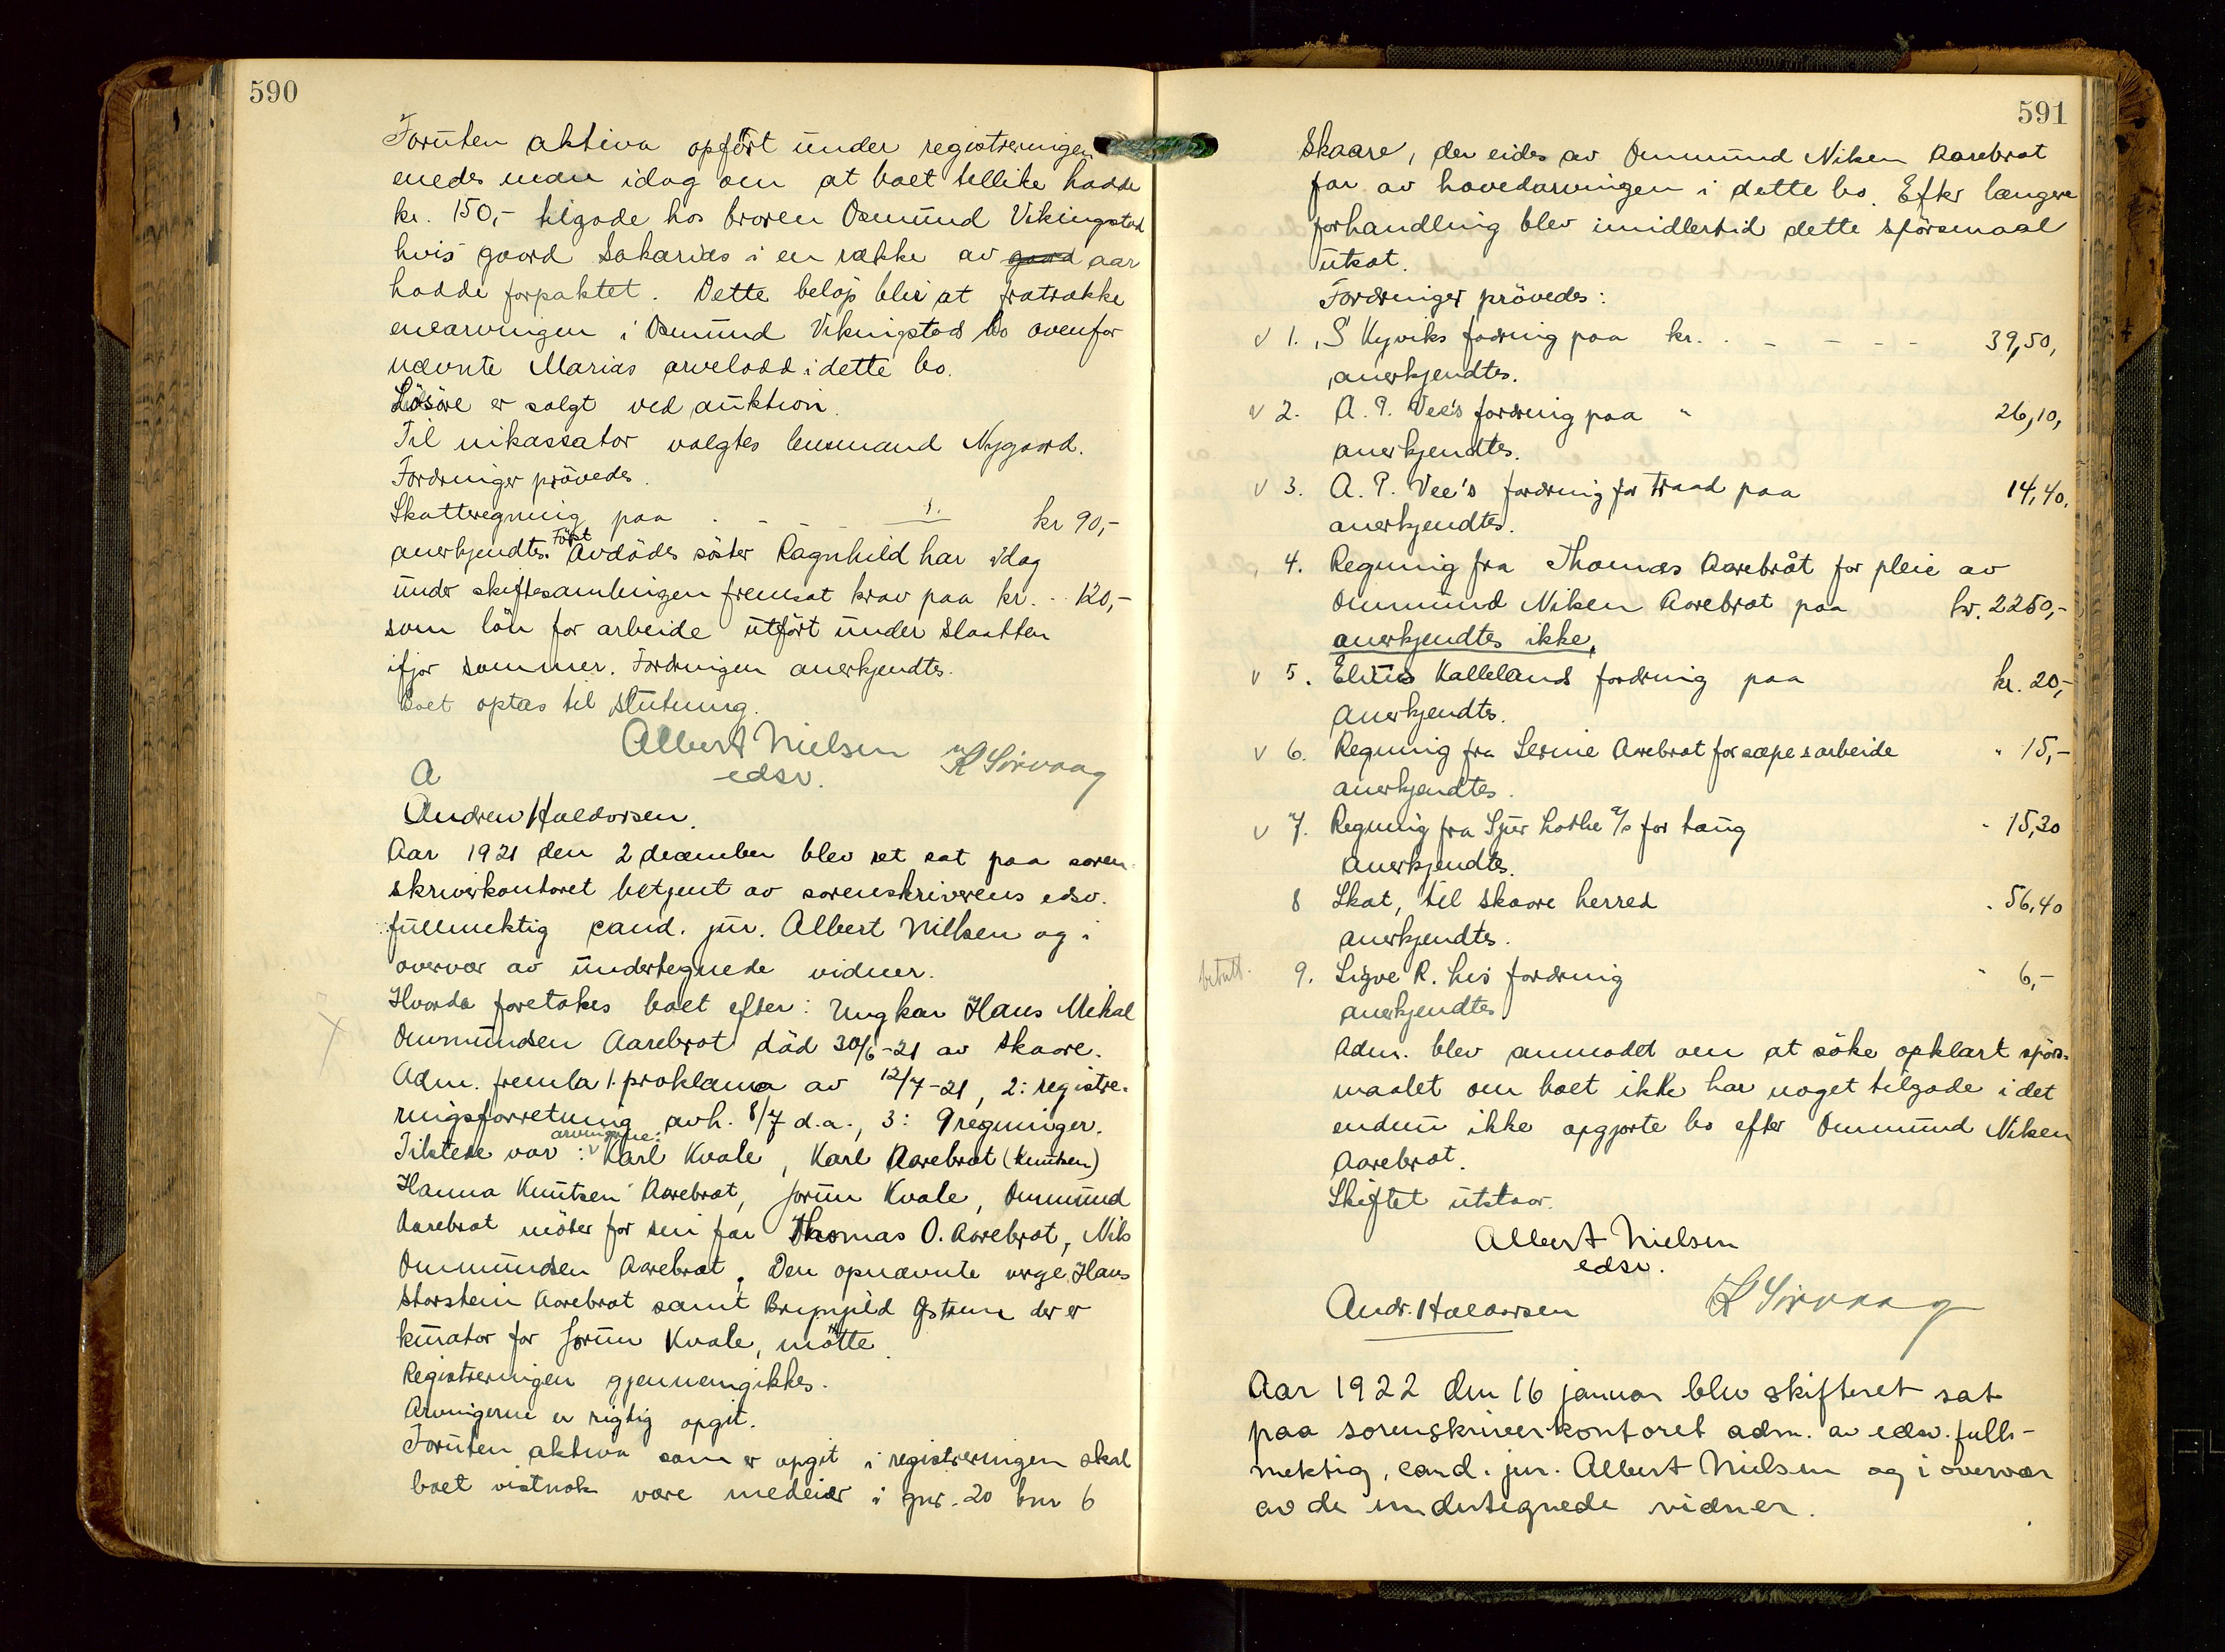 590
Foruten aktiva opført under registreringen
enedes man idag om at boet tillike hadde
kr. 150,- tilgode hos broren Osmund Vikingstad
hvis gaard Sakarias i en række av gaard aar
hadde forpaktet. Dette beløp blir at fratrække
enearvingen i Osmund Vikingstads bo ovenfor
nævnte Marias arvelodd i dette bo.
Løsøre er solgt ved auktion.
Til inkassator valgtes lensmand Nygaard.
Fordringer prøvedes.
Skatteregning paa . - - 1. kr 90,-
anerkjendtes. Avdødes søster Ragnhild har idag
under skiftesamlingen fremsat krav paa kr. .. 120,-
som løn for arbeide utført under slaatten
ifjor sommer. Fordringen anerkjendtes.
Boet optas til slutning.
Albert Nielsen K Sörvaag
edsv.
A
Andrew Haldorsen.
Aar 1921 den 2 december blev ret sat paa soren-
skriverkontoret betjent av sorenskriverens edsv.
fullmektig cand. jur. Albert Nielsen og i
overvær av undertegnede vidner.
Hvorda foretokes boet efter: Ungkar Hans Mikal
Ommundsen Aarebrot død 30/6-21 av Skaare.
Adm. fremla 1. proklama av 12/7-21, 2: registre-
ringsforretning avh. 8/7 d.a., 3: 9 regninger.
arvingerne:
Tilstede var: Karl Kvale, Karl Aarebrot (Knutsen)
Hanna Knutsen Aarebrot, Jorun Kvale, Ommund
Aarebrot møter for sin far Thomas O. Aarebrot, Nils
Ommundsen Aarebrot. Den opnævnte verge Hans
Storstein Aarebrot samt Brynjild der er
kurator for Jorun Kvale, møtte.
Registreringen gjennemgikkes.
Arvingerne er rigtig opgit.
Foruten aktiva som er opgit i registreringen skal
boet vistnok være medeier i gnr. 20 bnr 6
591
Skaare, der eides av Ommund Nilsen Aarebrot
far av hovedarvingen i dette bo. Efter længere
forhandling blev imidlertid dette spørsmaal
utsat.
Fordringer prøvedes:
v 1. S Kyviks fordring paa kr. . - - - - 39,50,
anerkjendtes.
v 2. A. P. Vee's fordring paa " 26,10,
anerkjendtes.
v 3. A. P. Vee's fordring for traad paa 14,40.
anerkjendtes.
4. Regning fra Thomas Aarebrot for pleie av
Ommund Nilsen Aarebrot paa kr. 2250,-
anerkjendtes ikke.
v 5. Elias Kallelands fordring paa kr. 20,-
anerkjendtes.
v 6. Regning fra Serine Aarebrot for arbeide " 15,-
anerkjendtes.
v 7. Regning fra Sjur Lothe a/s for taug " 15,30
anerkjendtes.
8 Skat, til Skaare herred " 56,40
anerkjendtes.
betalt. 9. Sigve R. Lies fordring " 6,-
anerkjendtes
Adm. blev anmodet om at søke opklart spørs-
maalet om boet ikke har noget tilgode i det
endnu ikke opgjorte bo efter Ommund Nilsen
Aarebrot.
Skiftet utstaar.
Albert Nielsen
edsv.
Andr. Haldorsen K Sörvaag
Aar 1922 den 16 januar blev skifteret sat
paa sorenskriverkontoret adm. av edsv. full-
mektig, cand. jur. Albert Nielsen og i overvær
av de undertegnede vidner.